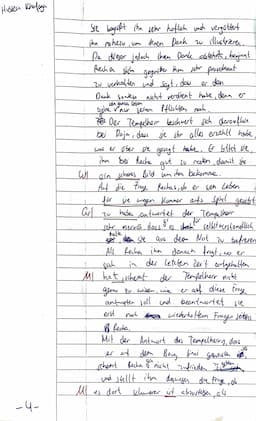 Sie begrüßt ihn sehr höflich und vergöttert
ihn nahezu um ihren Dank zu illustrieren.
Da dieser jedoch ihren Dank ablehnt, beginnt
Recha sich gegenüber ihm sehr provokant
zu verhalten und sagt, dass er den
Dank sowieso nicht verdient habe, denn er
nur seinen Pflichten nach.
Der Tempelherr beschwert sich daraufhin
bei Daja, dass sie ihr alles erzählt habe,
was er über sie gesagt habe. Er bittet sie,
ihm bei Recha gut zu reden, damit sie
W) ein schönes Bild um ihn bekomme.
Auf die Frage Rechas, ob er sein Leben
für sie wegen Kummer aufs Spiel gesetzt
Gr) zu habe antwortet der Tempelherr
sehr, dass es selbstverständlich
sie aus dem Not zu befreien
Als Recha ihn danach fragt, wo er
sich in der letzten Zeit aufgehalten
M) hat, scheint der Tempelherr nicht
genau zu wissen, wie er auf diese Frage
antworten soll und beantwortet sie
erst nach wiederholtem Fragen seitens
Recha.
Mit der Antwort des Tempelherrn, dass
er auf dem Berg Sinai gewesen
scheint Recha nicht zufrieden
und stellt ihm deswegen die Frage, ob
M) es dort schwerer ist abzusteigen, als
-4-